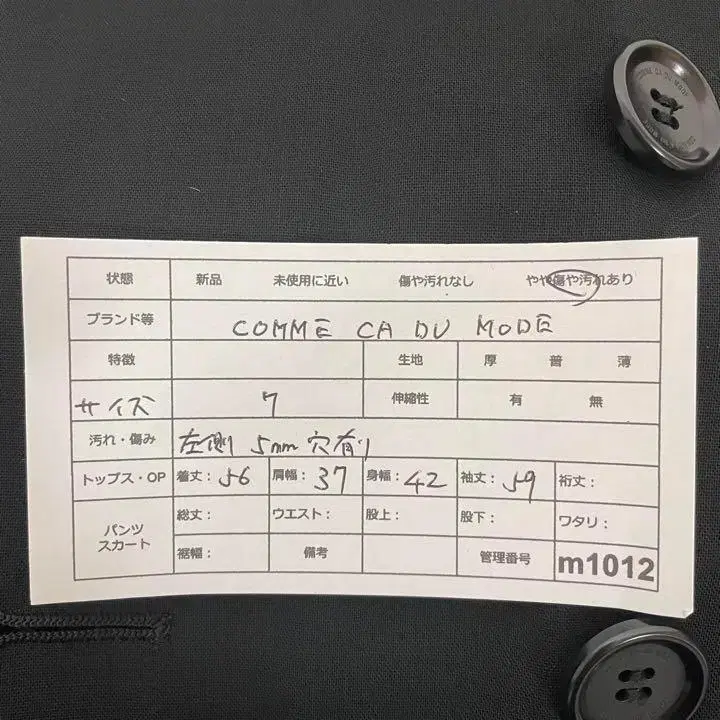 COMME CA DU MODE
状態 新品 未使用に近い 傷や汚れなし やや傷や汚れあり
ブランド等 COMME CA DU MODE
特徴 生地 厚 普 薄
サイズ 7 伸縮性 有 無
汚れ・傷み 左側 5mm 穴有り
トップス・OP 着丈: 56 肩幅: 37 身幅: 42 袖丈: 59 裄丈:
パンツ スカート
総丈: ウエスト: 股上: 股下: ワタリ:
裾幅: 備考 管理番号 m1012